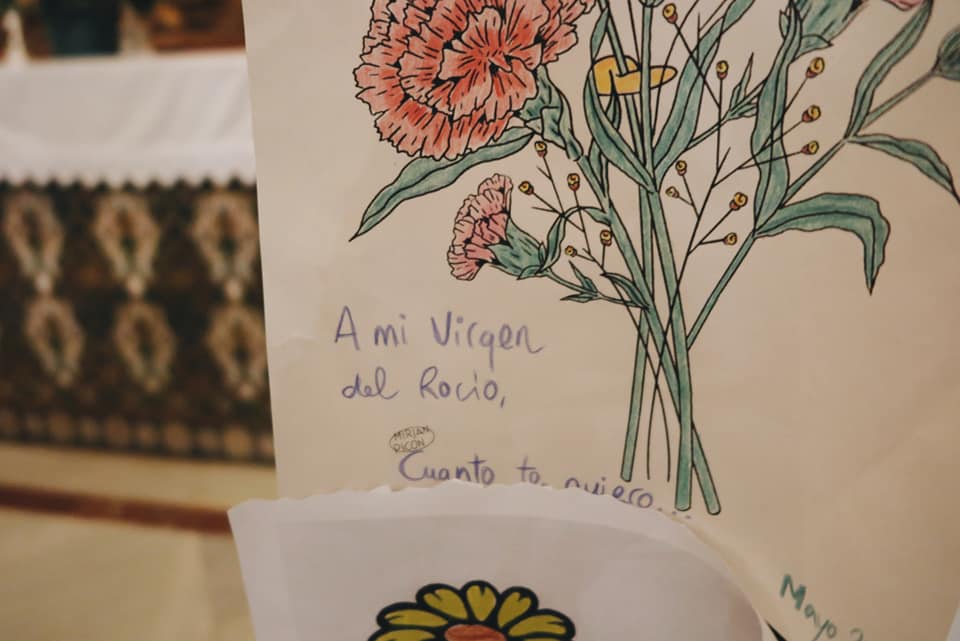 A mi Virgen
del Rocio,
MIRIAM
Cuanto te quiero...
Mayo 2